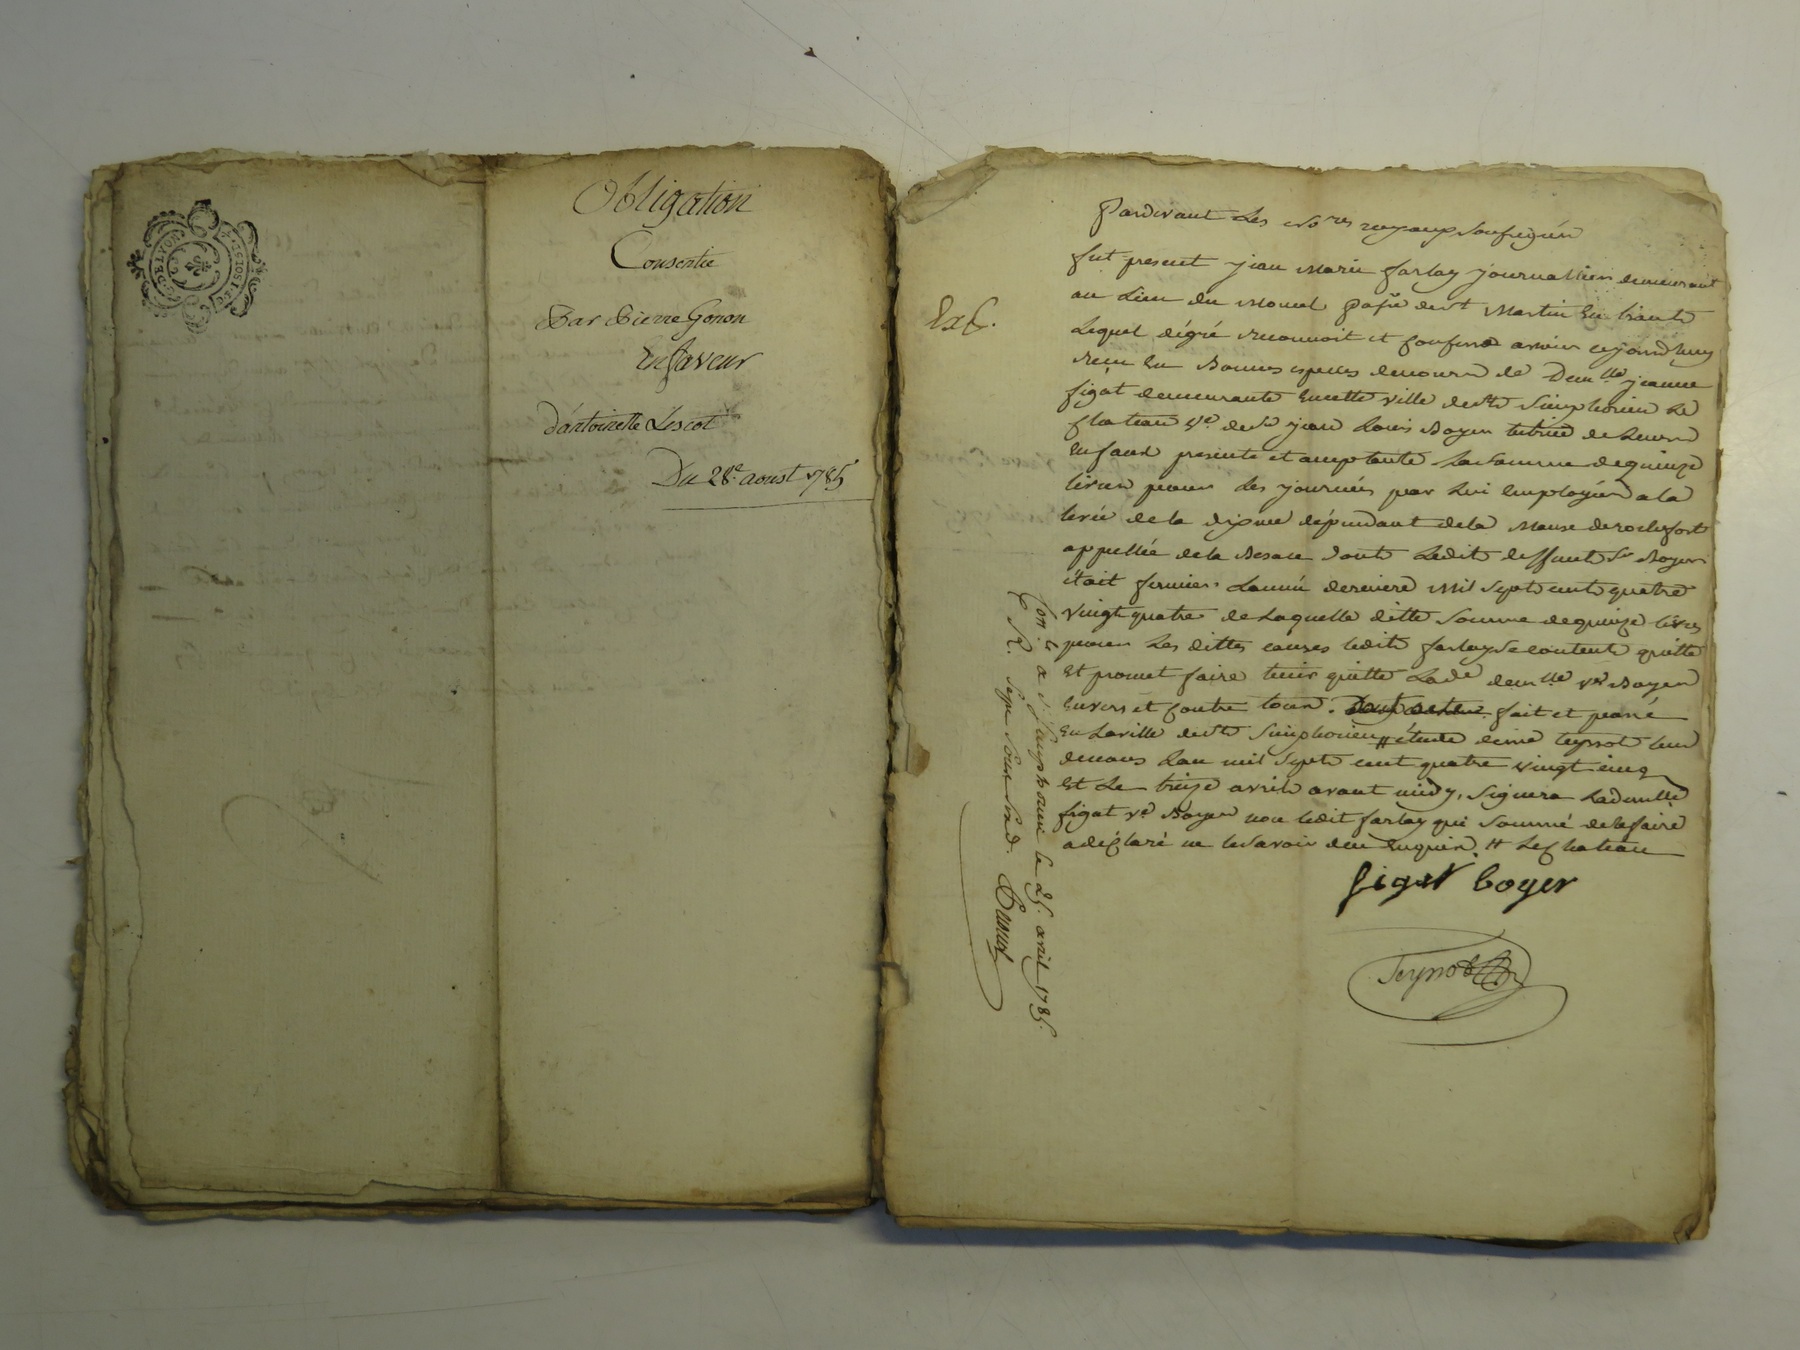 DE LYON
Obligation
Consentie
Par Pierre Gonon
En faveur
d'antoinette Lescot
Du 28e. aoust 1785
Exp.
Pardevant Les No.res royaux soussignés
fut present jean Marie farlay journallier demeurant
au Lieu du Monel passé de st Martin En haut
Lequel dégré reconnoit et confesse avoir cejourd'huy
reçu En Bonnes especes de cours de Dem.lle jeanne
figat demeurante En cette ville de st Simphorien Le
Chateau v.e de sr jean Louis Boyer tutrice de Leurs
Enfans presente et acceptante La somme de quinze
livres pour des journées par Lui Employées a la
levée de la dixme dépendant de la Manse de rochefort
appellée de la Besace dont Ledit deffunt Sr Boyer
était fermier L'année derniere Mil Sept cent quatre
vingt quatre de Laquelle ditte Somme de quinze livres
pour Les dittes causes ledit farlay se contente quitte
Et promet faire tenir quitte Lad.e dem.lle v.e Boyer
Envers et contre tous. fait et passé
En La ville de st Simphorien # étude de me teyssot l'un
de nous L'an mil Sept cent quatre vingt cinq
Et Le treize avril avant midy, Signera Lad.e demlle
figat v.e Boyer non ledit farlay qui Sommé de le faire
a déclaré ne le Savoir de ce Enquis. # Le Chateau
figat boyer
Con.lé a st Simphorien le 25. avril 1785.
R. Sept Sous Six d.